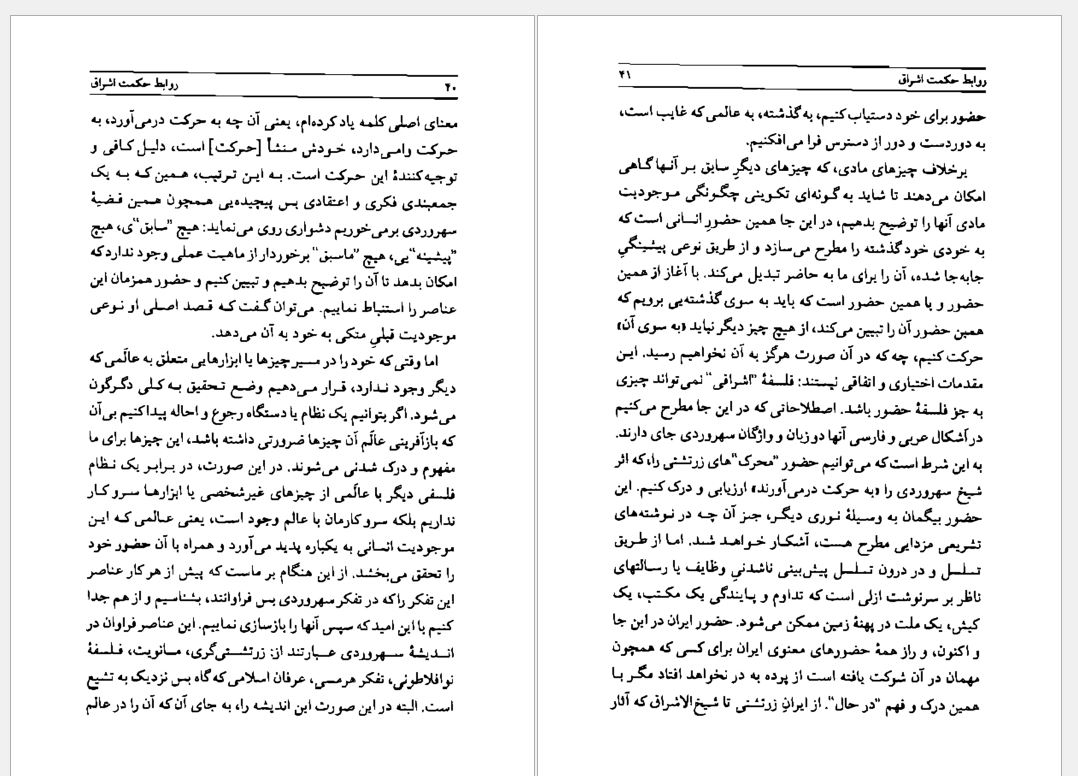 ۴۰ روابط حکمت اشراق
معنای اصلی کلمه یاد کرده‌ام، یعنی آن چه به حرکت درمی‌آورد، به
حرکت وامی‌دارد، خودش منشأ [حرکت] است، دلیل کافی و
توجیه‌کنندهٔ این حرکت است. به این ترتیب، همین که به یک
جمعبندی فکری و اعتقادی بس پیچیده‌یی همچون همین قضیهٔ
سهروردی برمی‌خوریم دشواری روی می‌نماید: هیچ "سابق"ی، هیچ
"پیشینه"یی، هیچ "ماسبق" برخوردار از ماهیت عملی وجود ندارد که
امکان بدهد تا آن را توضیح بدهیم و تبیین کنیم و حضور همزمان این
عناصر را استنباط نماییم. می‌توان گفت که قصد اصلی او نوعی
موجودیت قبلیِ متکی به خود به آن می‌دهد.
اما وقتی که خود را در مسیر چیزها یا ابزارهایی متعلق به عالَمی که
دیگر وجود ندارد، قرار می‌دهیم وضع تحقیق به کلی دگرگون
می‌شود. اگر بتوانیم یک نظام یا دستگاه رجوع و احاله پیدا کنیم بی‌آن
که بازآفرینی عالَم آن چیزها ضرورتی داشته باشد، این چیزها برای ما
مفهوم و درک شدنی می‌شوند. در این صورت، در برابر یک نظام
فلسفی دیگر با عالَمی از چیزهای غیرشخصی یا ابزارها سروکار
نداریم بلکه سروکارمان با عالم وجود است، یعنی عالمی که این
موجودیت انسانی به یکباره پدید می‌آورد و همراه با آن حضور خود
را تحقق می‌بخشد. از این هنگام بر ماست که پیش از هر کار عناصر
این تفکر را که در تفکر سهروردی بس فراوانند، بشناسیم و از هم جدا
کنیم با این امید که سپس آنها را بازسازی نماییم. این عناصر فراوان در
اندیشهٔ سهروردی عبارتند از: زرتشتی‌گری، مانویت، فلسفهٔ
نوافلاطونی، تفکر هرمسی، عرفان اسلامی که گاه بس نزدیک به تشیع
است. البته در این صورت این اندیشه را، به جای آن که آن را در عالم
روابط حکمت اشراق ۴۱
حضور برای خود دستیاب کنیم، به گذشته، به عالمی که غایب است،
به دوردست و دور از دسترس فرا می‌افکنیم.
برخلاف چیزهای مادی، که چیزهای دیگرِ سابق بر آنها گاهی
امکان می‌دهند تا شاید به گونه‌ای تکوینی چگونگی موجودیت
مادی آنها را توضیح بدهیم، در این جا همین حضورِ انسانی است که
به خودی خود گذشته را مطرح می‌سازد و از طریق نوعی پیشینگیِ
جابه‌جا شده، آن را برای ما به حاضر تبدیل می‌کند. با آغاز از همین
حضور و با همین حضور است که باید به سوی گذشته‌یی برویم که
همین حضور آن را تبیین می‌کند، از هیچ چیز دیگر نباید «به سوی آن»
حرکت کنیم، چه که در آن صورت هرگز به آن نخواهیم رسید. این
مقدمات اختیاری و اتفاقی نیستند: فلسفهٔ "اشراقی" نمی‌تواند چیزی
به جز فلسفهٔ حضور باشد. اصطلاحاتی که در این جا مطرح می‌کنیم
در اَشکال عربی و فارسی آنها دو زبان و واژگان سهروردی جای دارند.
به این شرط است که می‌توانیم حضور "محرک"های زرتشتی را، که اثر
شیخ سهروردی را «به حرکت درمی‌آورند» ارزیابی و درک کنیم. این
حضور بیگمان به وسیلهٔ نوری دیگر، جز آن چه در نوشته‌های
تشریعی مزدایی مطرح هست، آشکار خواهد شد. اما از طریق
تسلسل و در درون تسلسل پیش‌بینی ناشدنیِ وظایف یا رسالتهای
ناظر بر سرنوشت ازلی است که تداوم و پایندگی یک مکتب، یک
کیش، یک ملت در پهنهٔ زمین ممکن می‌شود. حضور ایران در این جا
و اکنون، و راز همهٔ حضورهای معنوی ایران برای کسی که همچون
مهمان در آن شوکت یافته است از پرده به در نخواهد افتاد مگر با
همین درک و فهم "در حال". از ایرانِ زرتشتی تا شیخ‌الاشراق که آثار